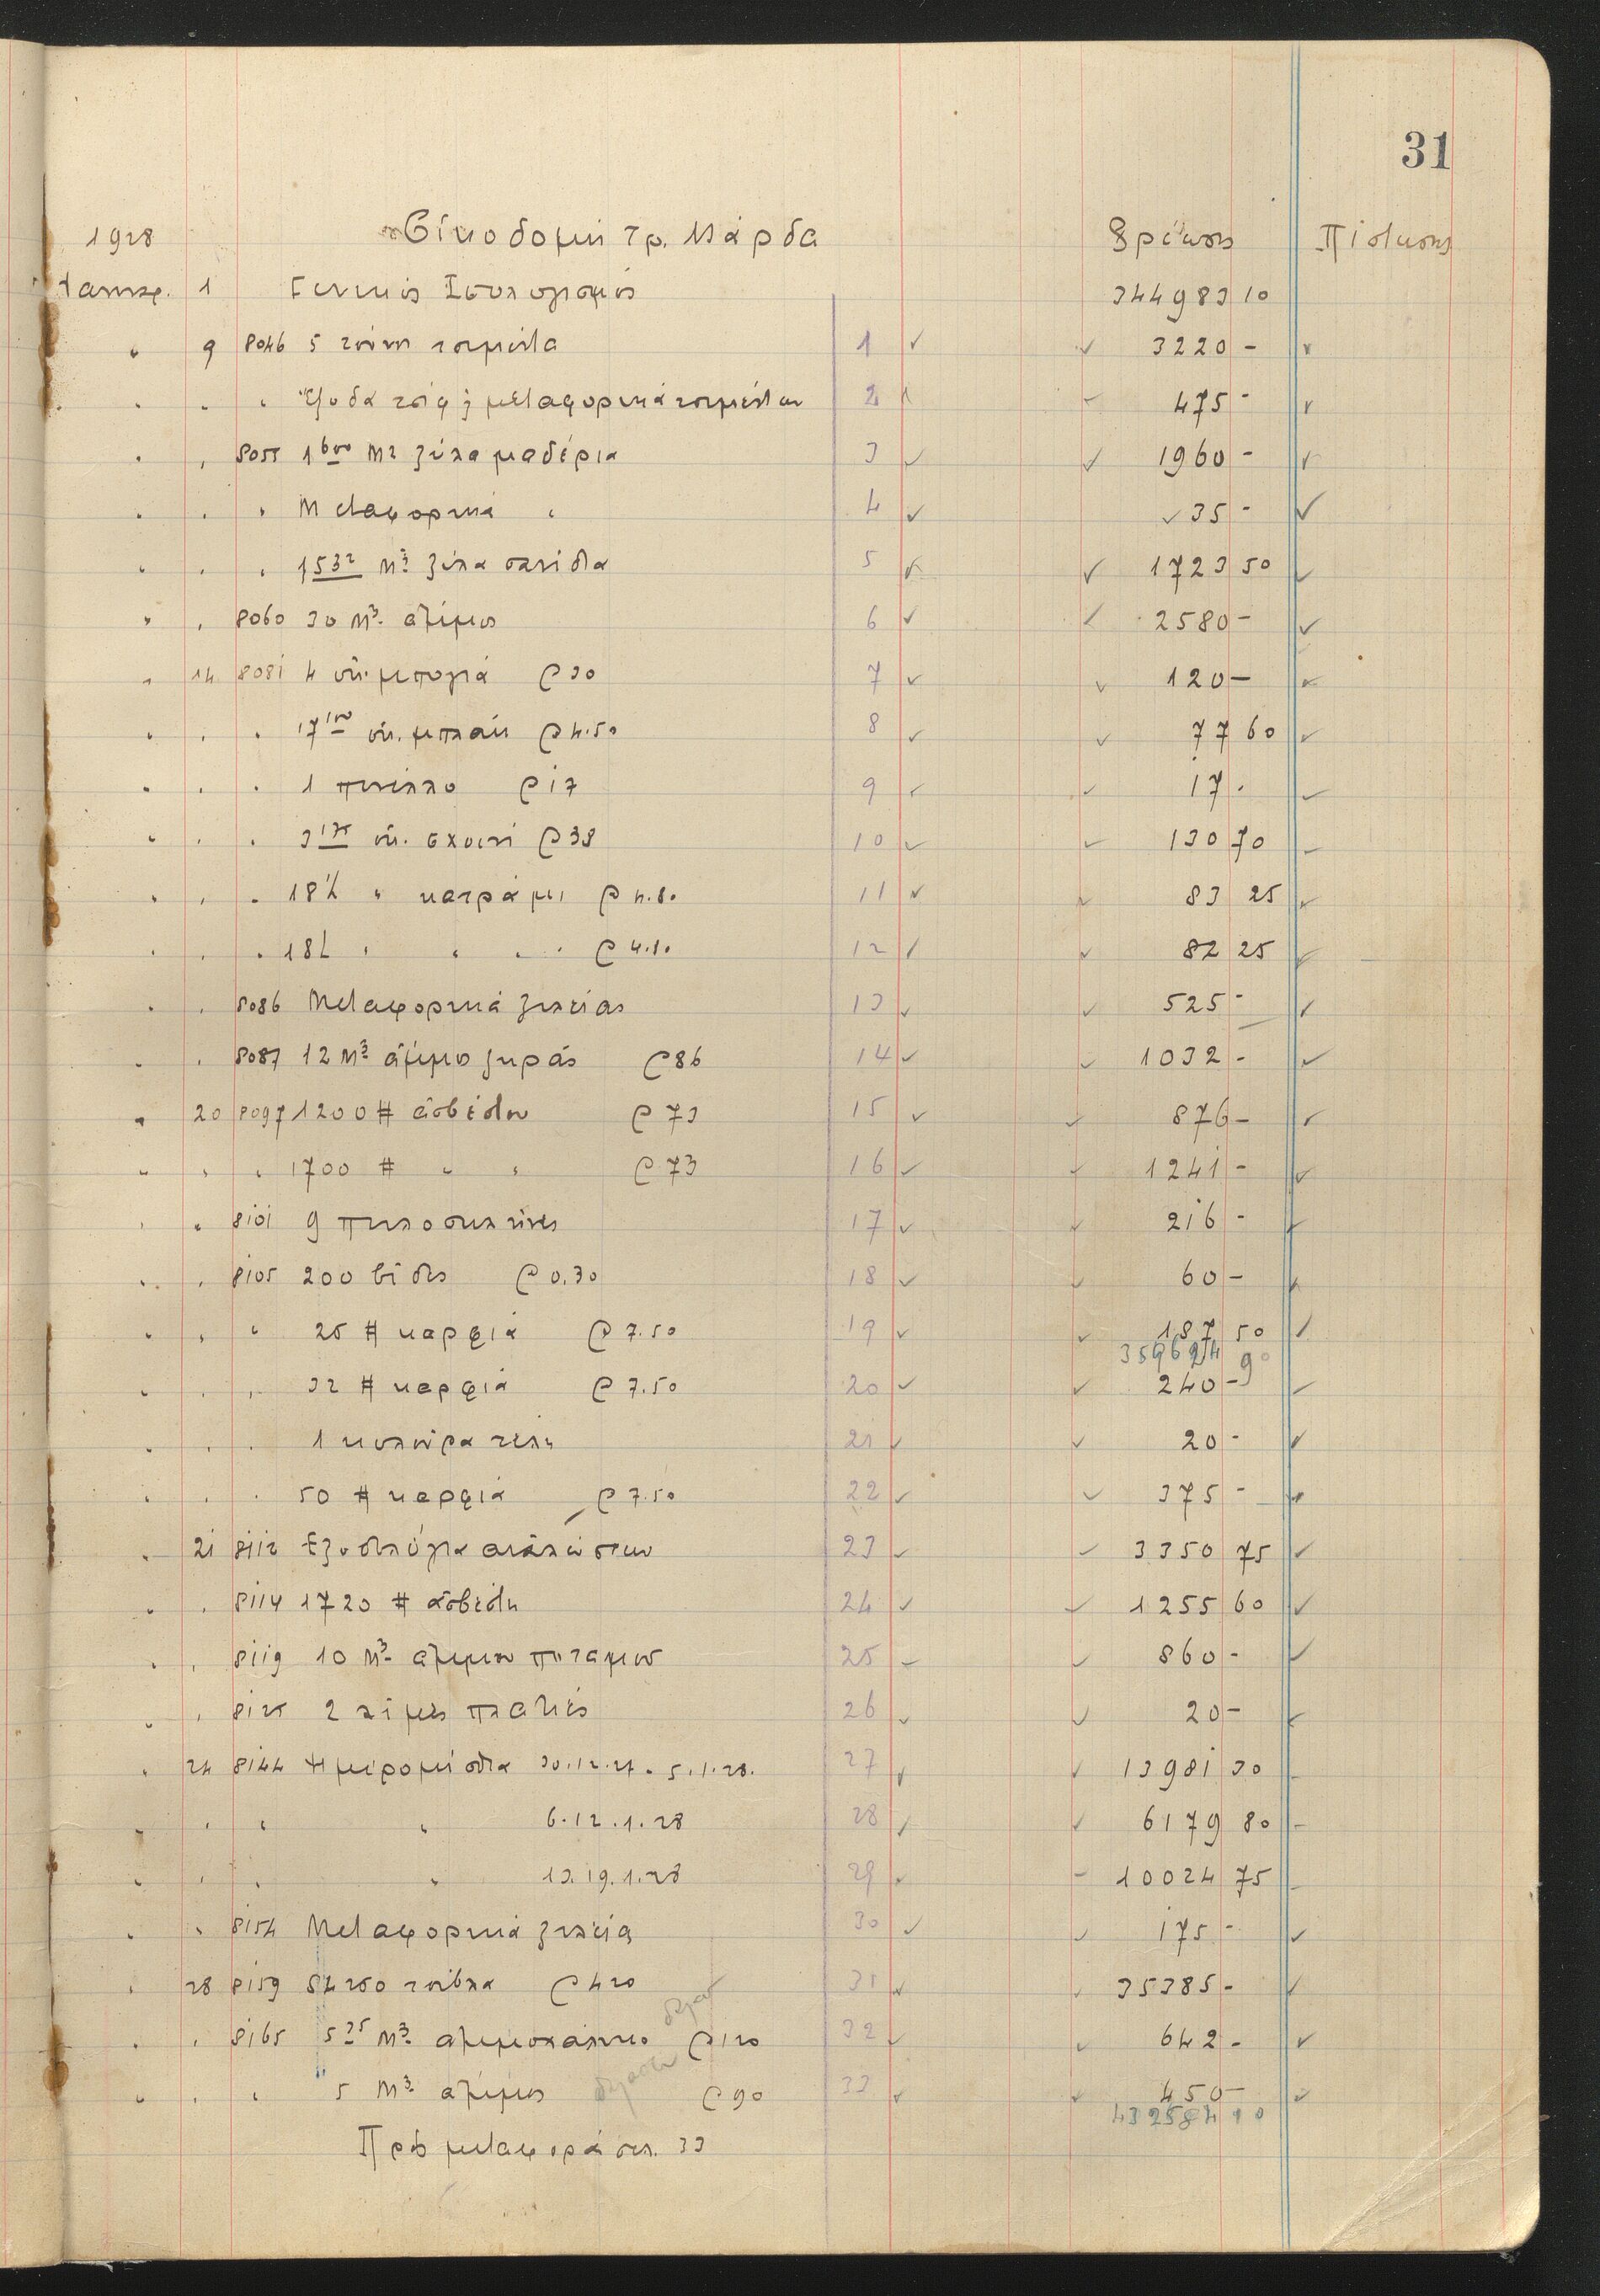 31
1928 Οἰκοδομή Τρ. Μάρδα Χρέωσις Πίστωσις
1 Γενικός Ισολογισμός 344983 10
" 9 8046 5 τόννοι τσιμέντα 1 3220 -
" " " Έξοδα μεταφορικά τσιμέντων 2 475 -
" " 8055 1600 M3 ξύλα μαδέρια 3 1960 -
" " " Μεταφορικά " 4 35 -
" " " 1532 M3 ξύλα σανίδια 5 1723 50
" " 8060 30 M3 άμμος 6 2580 -
" 14 8081 4 οκ. μπογιά @ 30 7 120 -
" " " 17100 οκ. @ 4.50 8 77 60
" " " 1 πινέλλο @ 17 9 17 -
" " " 3175 οκ. σχοινί @ 38 10 130 70
" " " 18 " κατράμι @ 4.80 11 83 25
" " " 18 " " " @ 4.80 12 82 25
" " 8086 Μεταφορικά ξυλείας 13 525 -
" " 8087 12 M3 άμμος ξηράς @ 86 14 1032 -
" 20 8097 1200 # ασβέστου @ 73 15 876 -
" " " 1700 # " " @ 73 16 1241 -
" " 8101 9 πηλοσωλήνες 17 216 -
" " 8105 200 βίδες @ 0.30 18 60 -
" " " 25 # καρφιά @ 7.50 19 187 50
359624 90
" " " 32 # καρφιά @ 7.50 20 240 -
" " " 1 κουλούρα τέλι 21 20 -
" " " 50 # καρφιά @ 7.50 22 375 -
" 21 8112 Εξοδολόγια αναλώσεων 23 3350 75
" " 8114 1720 # ασβέστη 24 1255 60
" " 8119 10 M3 άμμου ποταμού 25 860 -
" " 8125 2 λίμες πλατιές 26 20 -
" 24 8144 Ημερομίσθια 30.12.27 - 5.1.28. 27 13981 30
" " " " 6.12.1.28 28 6179 80
" " " " 13.19.1.28 29 10024 75
" " 8154 Μεταφορικά ξυλεία 30 175 -
" 28 8159 84250 τούβλα @ 420 31 35385 -
" " 8165 535 M3 αμμοχάλικο @ 120 32 642 -
" " " 5 M3 άμμος @ 90 33 450 -
432584 10
Προς μεταφορά σελ. 33